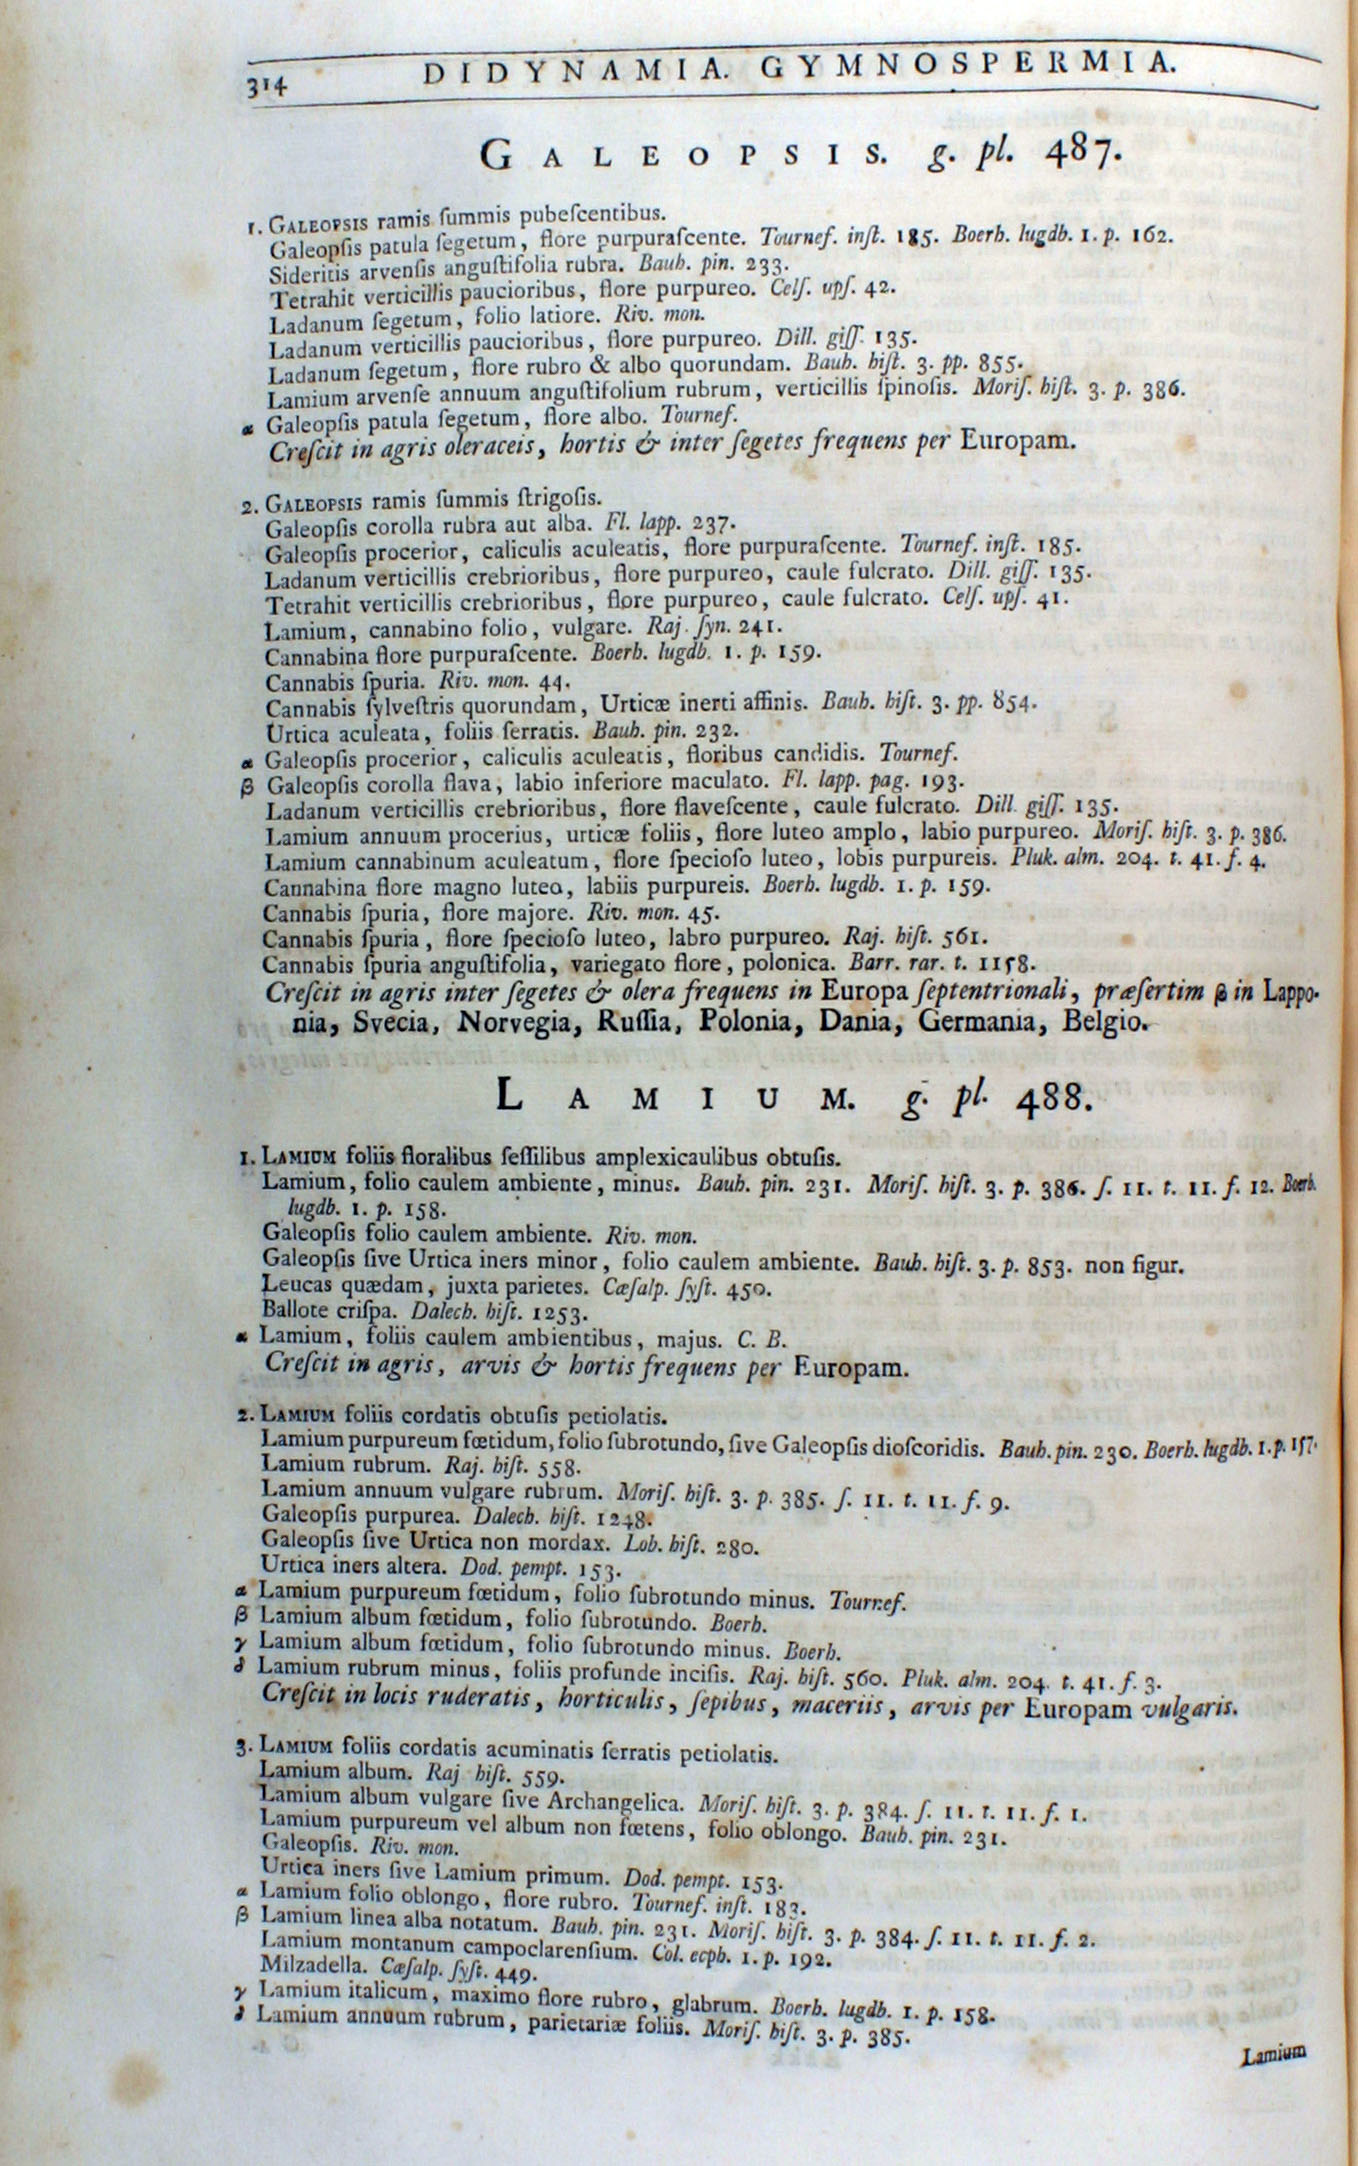 314 DIDYNAMIA. GYMNOSPERMIA.
GALEOPSIS. g. pl. 487.
1. GALEOPSIS ramis ſummis pubeſcentibus.
Galeopſis patula ſegetum, flore purpuraſcente. Tournef. inſt. 185. Boerh. lugdb. 1. p. 162.
Sideritis arvenſis anguſtifolia rubra. Bauh. pin. 233.
Tetrahit verticillis paucioribus, flore purpureo. Celſ. upſ. 42.
Ladanum ſegetum, folio latiore. Riv. mon.
Ladanum verticillis paucioribus, flore purpureo. Dill. giſſ. 135.
Ladanum ſegetum, flore rubro & albo quorundam. Bauh. hiſt. 3. pp. 855.
Lamium arvenſe annuum anguſtifolium rubrum, verticillis ſpinoſis. Moriſ. hiſt. 3. p. 386.
α Galeopſis patula ſegetum, flore albo. Tournef.
Creſcit in agris oleraceis, hortis & inter ſegetes frequens per Europam.
2. GALEOPSIS ramis ſummis ſtrigoſis.
Galeopſis corolla rubra aut alba. Fl. lapp. 237.
Galeopſis procerior, caliculis aculeatis, flore purpuraſcente. Tournef. inſt. 185.
Ladanum verticillis crebrioribus, flore purpureo, caule fulcrato. Dill. giſſ. 135.
Tetrahit verticillis crebrioribus, flore purpureo, caule fulcrato. Celſ. upſ. 41.
Lamium, cannabino folio, vulgare. Raj. ſyn. 241.
Cannabina flore purpuraſcente. Boerh. lugdb. 1. p. 159.
Cannabis ſpuria. Riv. mon. 44.
Cannabis ſylveſtris quorundam, Urticæ inerti affinis. Bauh. hiſt. 3. pp. 854.
Urtica aculeata, foliis ſerratis. Bauh. pin. 232.
α Galeopſis procerior, caliculis aculeatis, floribus candidis. Tournef.
β Galeopſis corolla flava, labio inferiore maculato. Fl. lapp. pag. 193.
Ladanum verticillis crebrioribus, flore flaveſcente, caule fulcrato. Dill. giſſ. 135.
Lamium annuum procerius, urticæ foliis, flore luteo amplo, labio purpureo. Moriſ. hiſt. 3. p. 386.
Lamium cannabinum aculeatum, flore ſpecioſo luteo, lobis purpureis. Pluk. alm. 204. t. 41. f. 4.
Cannabina flore magno luteo, labiis purpureis. Boerh. lugdb. 1. p. 159.
Cannabis ſpuria, flore majore. Riv. mon. 45.
Cannabis ſpuria, flore ſpecioſo luteo, labro purpureo. Raj. hiſt. 561.
Cannabis ſpuria anguſtifolia, variegato flore, polonica. Barr. rar. t. 1158.
Creſcit in agris inter ſegetes & olera frequens in Europa ſeptentrionali, præſertim β in Lappo-
nia, Svecia, Norvegia, Ruſſia, Polonia, Dania, Germania, Belgio.
LAMIUM. g. pl. 488.
1. LAMIUM foliis floralibus ſeſſilibus amplexicaulibus obtuſis.
Lamium, folio caulem ambiente, minus. Bauh. pin. 231. Moriſ. hiſt. 3. p. 386. ſ. 11. t. 11. f. 12. Boerh.
lugdb. 1. p. 158.
Galeopſis folio caulem ambiente. Riv. mon.
Galeopſis ſive Urtica iners minor, folio caulem ambiente. Bauh. hiſt. 3. p. 853. non figur.
Leucas quædam, juxta parietes. Cæſalp. ſyſt. 450.
Ballote criſpa. Dalech. hiſt. 1253.
α Lamium, foliis caulem ambientibus, majus. C. B.
Creſcit in agris, arvis & hortis frequens per Europam.
2. LAMIUM foliis cordatis obtuſis petiolatis.
Lamium purpureum fœtidum, folio ſubrotundo, ſive Galeopſis dioſcoridis. Bauh. pin. 230. Boerh. lugdb. 1. p. 157.
Lamium rubrum. Raj. hiſt. 558.
Lamium annuum vulgare rubrum. Moriſ. hiſt. 3. p. 385. ſ. 11. t. 11. f. 9.
Galeopſis purpurea. Dalech. hiſt. 1248.
Galeopſis ſive Urtica non mordax. Lob. hiſt. 280.
Urtica iners altera. Dod. pempt. 153.
α Lamium purpureum fœtidum, folio ſubrotundo minus. Tournef.
β Lamium album fœtidum, folio ſubrotundo. Boerh.
γ Lamium album fœtidum, folio ſubrotundo minus. Boerh.
δ Lamium rubrum minus, foliis profunde inciſis. Raj. hiſt. 560. Pluk. alm. 204. t. 41. f. 3.
Creſcit in locis ruderatis, horticulis, ſepibus, maceriis, arvis per Europam vulgaris.
3. LAMIUM foliis cordatis acuminatis ſerratis petiolatis.
Lamium album. Raj hiſt. 559.
Lamium album vulgare ſive Archangelica. Moriſ. hiſt. 3. p. 384. ſ. 11. t. 11. f. 1.
Lamium purpureum vel album non fœtens, folio oblongo. Bauh. pin. 231.
Galeopſis. Riv. mon.
Urtica iners ſive Lamium primum. Dod. pempt. 153.
α Lamium folio oblongo, flore rubro. Tournef. inſt. 183.
β Lamium linea alba notatum. Bauh. pin. 231. Moriſ. hiſt. 3. p. 384. ſ. 11. t. 11. f. 2.
Lamium montanum campoclarenſium. Col. ecph. 1. p. 192.
Milzadella. Cæſalp. ſyſt. 449.
γ Lamium italicum, maximo flore rubro, glabrum. Boerh. lugdb. 1. p. 158.
δ Lamium annuum rubrum, parietariæ foliis. Moriſ. hiſt. 3. p. 385.
Lamium